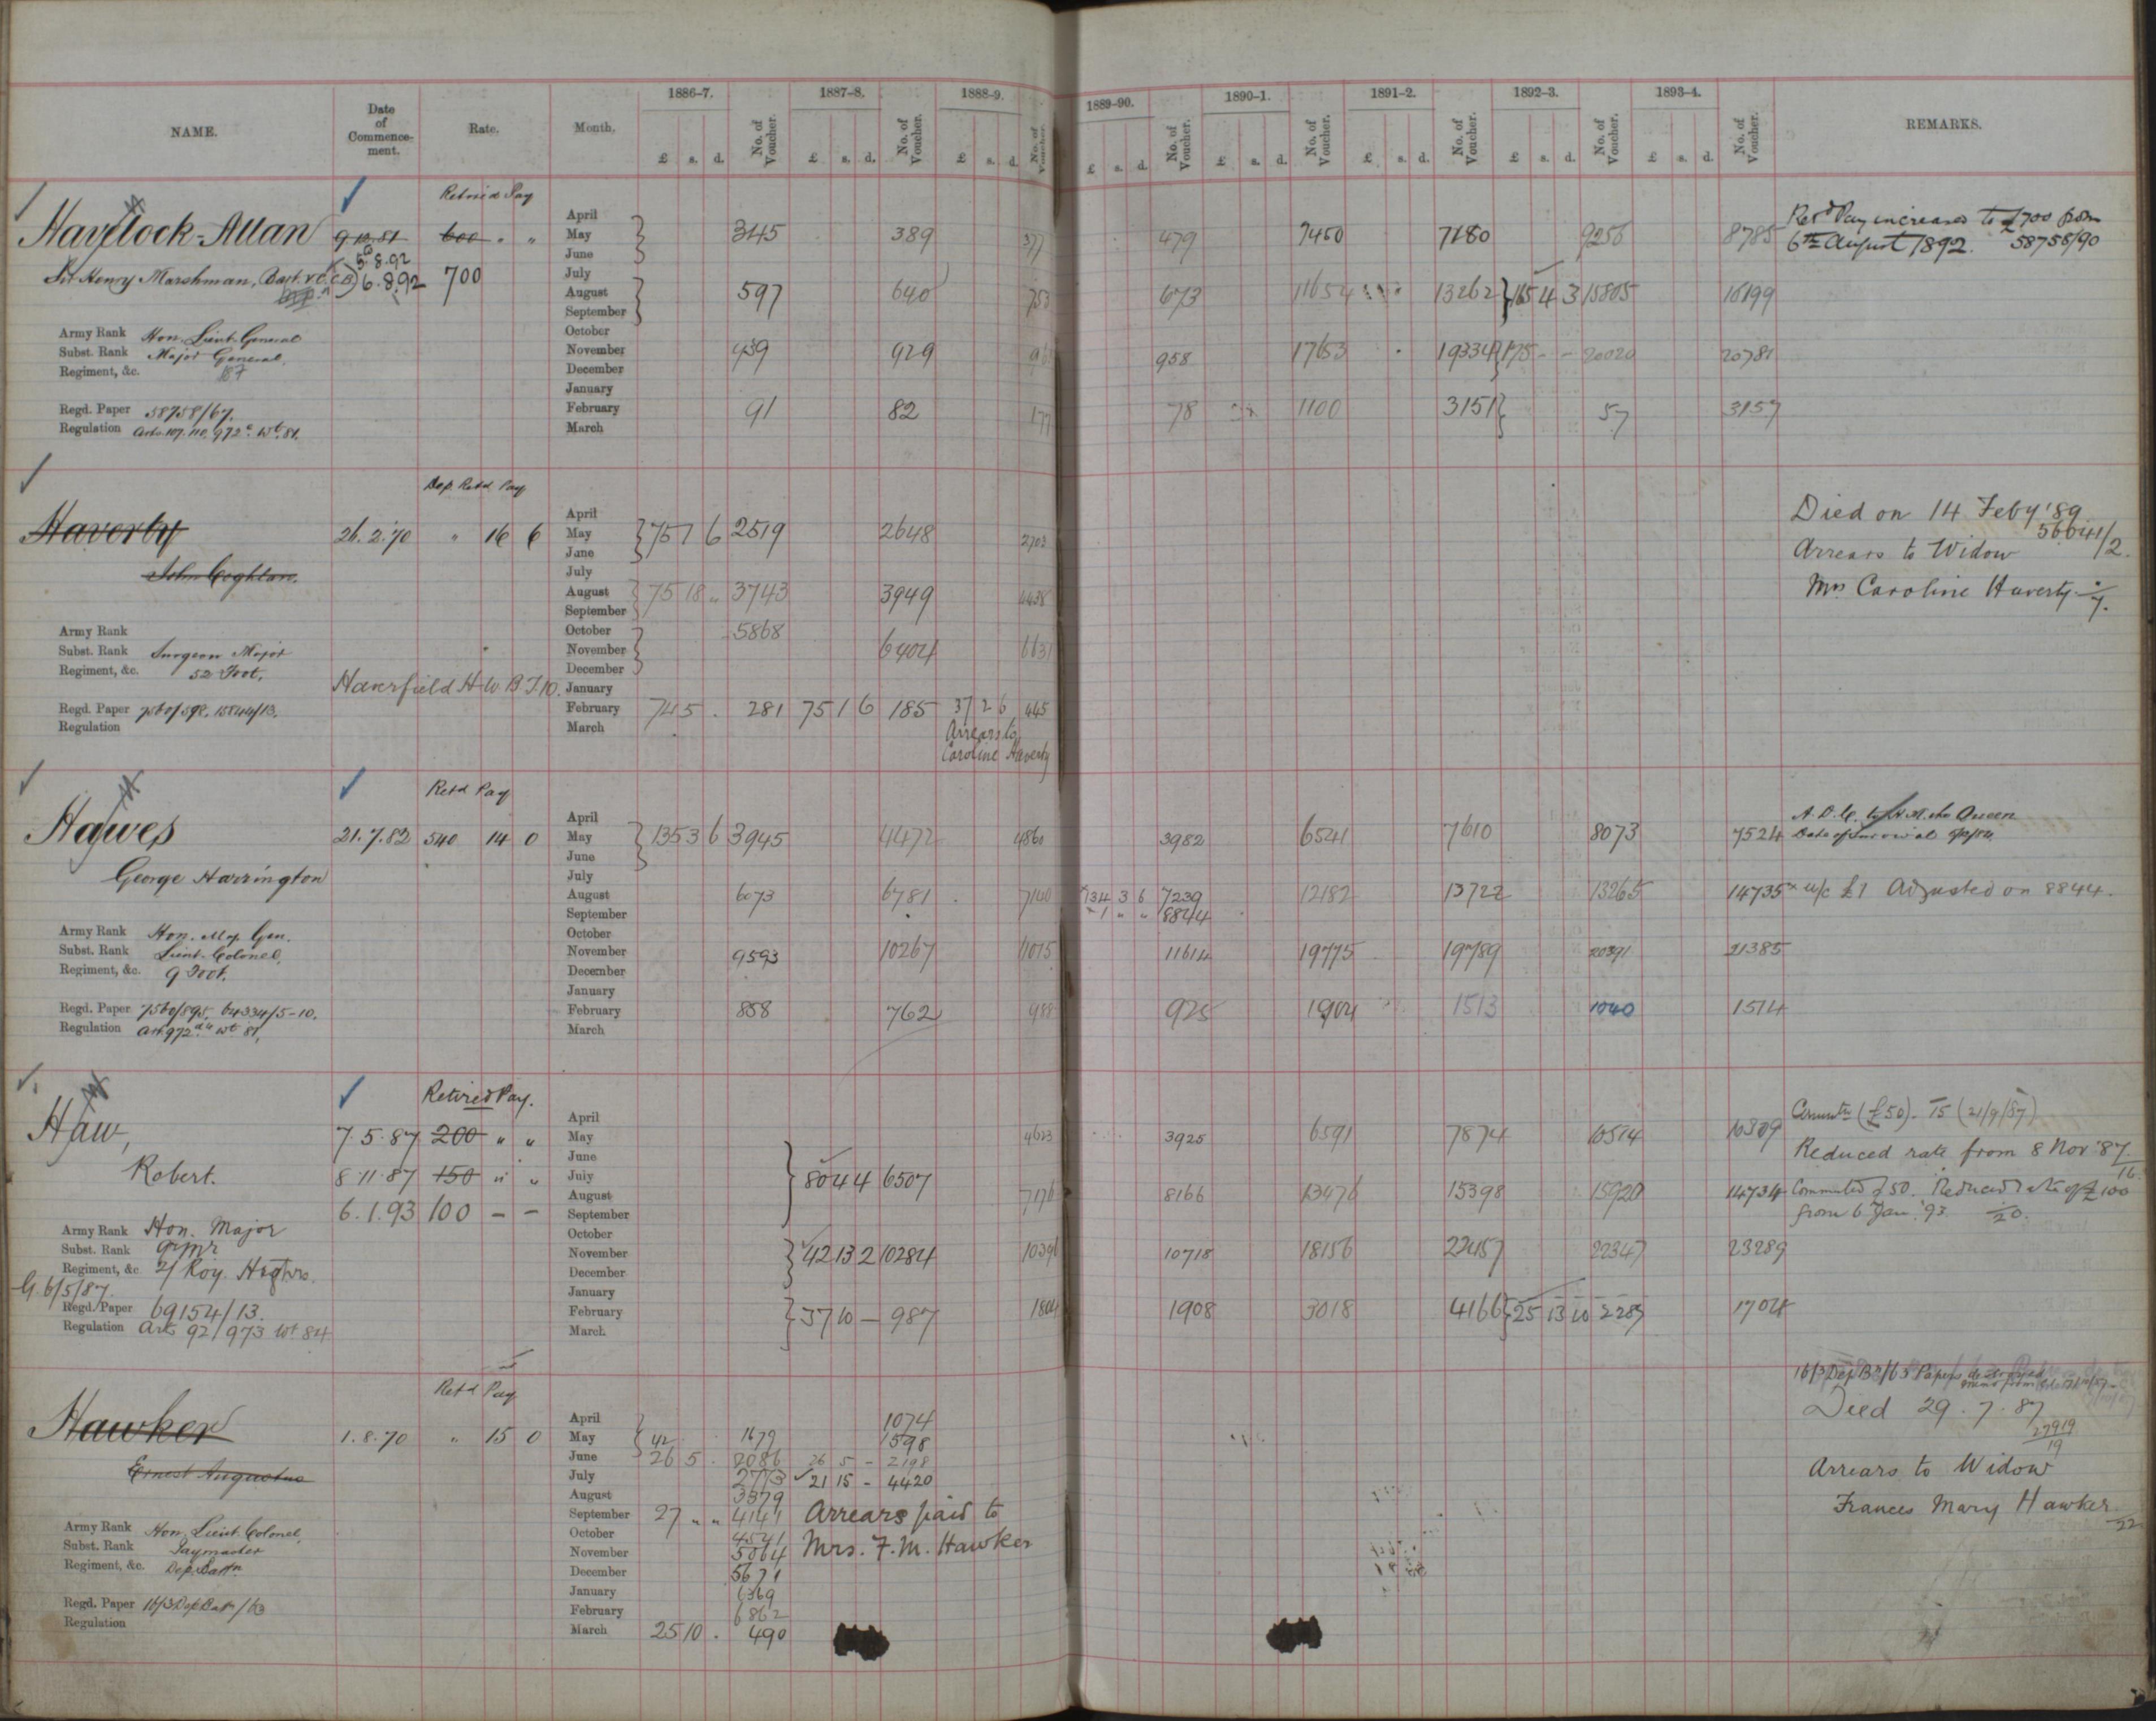 NAME. Date of Commencement. Rate. Month. 1886-7. No. of Voucher. 1887-8. No. of Voucher. 1888-9. No. of Voucher. 1889-90. No. of Voucher. 1890-1. No. of Voucher. 1891-2. No. of Voucher. 1892-3. No. of Voucher. 1893-4. No. of Voucher. REMARKS.
£ s. d. £ s. d. £ s. d. £ s. d. £ s. d. £ s. d. £ s. d. £ s. d.
Retired Pay
April
Havelock-Allan 9.10.81 600 " " May 3445 389 377 479 7450 7180 9256 8785 Retd Pay increased to £700 from
June 6th August 1892. 58758/90
5.8.92
Sir Henry Marshman, Bart. V.C. C.B. 6.8.92 700 July
August 597 640 753 673 11654 13262 165 4 3 15805 16199
September
Army Rank Hon. Lieut. General October
Subst. Rank Major General November 939 929 958 1763 19334 175 - - 20020 20781
Regiment, &c. December
January
Regd. Paper 58758/67. February 91 82 177 78 1100 3151 57 3157
Regulation Arts 107. 110. 972 c Wt. 81. March
Dep. Retd Pay
April
Haverty 26.2.70 " 16 6 May 75 1 6 2519 2648 2703 Died on 14 Feby '89
June 56041/2.
John Coghlan. July Arrears to Widow
August 75 18 " 3743 3949 4438 Mrs Caroline Haverty. /7.
September
Army Rank October 5868
Subst. Rank Surgeon Major November 6404 6631
Regiment, &c. 52 Foot. December
Haverfield H.W.B. J.10. January
Regd. Paper 7560/598. 15844/13. February 74 5 . 281 75 1 6 185 37 2 6 445
Regulation March Arrears to
Caroline Haverty
Retd Pay
April A.D.C. to H.M. the Queen
Hawes 21.7.82 540 14 0 May 135 3 6 3945 4472 4860 3982 6541 7610 8073 7524
June
George Harrington July
August 6073 6781 7140 134 3 6 7239 12182 13722 13265 14735 x u/c £1 Adjusted on 8844.
September 1 " " 8844
Army Rank Hon. Maj. Gen. October
Subst. Rank Lieut. Colonel. November 9593 10267 11075 11614 19775 19789 20391 21385
Regiment, &c. 9 Foot. December
January
Regd. Paper 7560/595, 64334/5-10. February 858 762 988 925 1904 1513 1040 1514
Regulation Art 972 Wt 81. March
Retired Pay.
April Commutn (£50). 15 (21/9/87)
Haw, 7.5.87 200 " " May 4623 3925 6591 7874 10514 10309
June Reduced rate from 8 Nov '87. 16.
Robert. 8.11.87 150 " " July 80 4 4 6507
August 7176 8166 13476 15398 15920 14734 Commuted £50. Reduced rate of £100
6.1.93 100 - - September from 6 Jan. '93. 20.
Army Rank Hon. Major October
Subst. Rank Qr Mr November 42 13 2 10284 10391 10718 18156 22457 22347 23289
Regiment, &c. 2/ Roy. Highrs. December
G. 6/5/87. January
Regd. Paper 69154/13. February 37 10 - 987 1804 1908 3018 4166 25 13 10 2287 1704
Regulation Arts 92/973 Wt 84 March
Retd Pay
16/3 Dep Bn/63 Papers
April 1074
Hawker 1.8.70 " 15 0 May 42 1679 1598 Died 29.7.87
June 26 5 . 2086 26 5 - 2198 27919/19
Ernest Augustus July 2773 21 15 - 4420 Arrears to Widow
August 3379
September 27 " " 4141 Arrears paid to Frances Mary Hawker. /22
Army Rank Hon. Lieut. Colonel, October 4541
Subst. Rank Paymaster November 5064 Mrs. F.M. Hawker
Regiment, &c. Dep. Battn. December 5671
January 6369
Regd. Paper 16/3 Dep Batn/63 February 6862
Regulation March 25 10 . 490